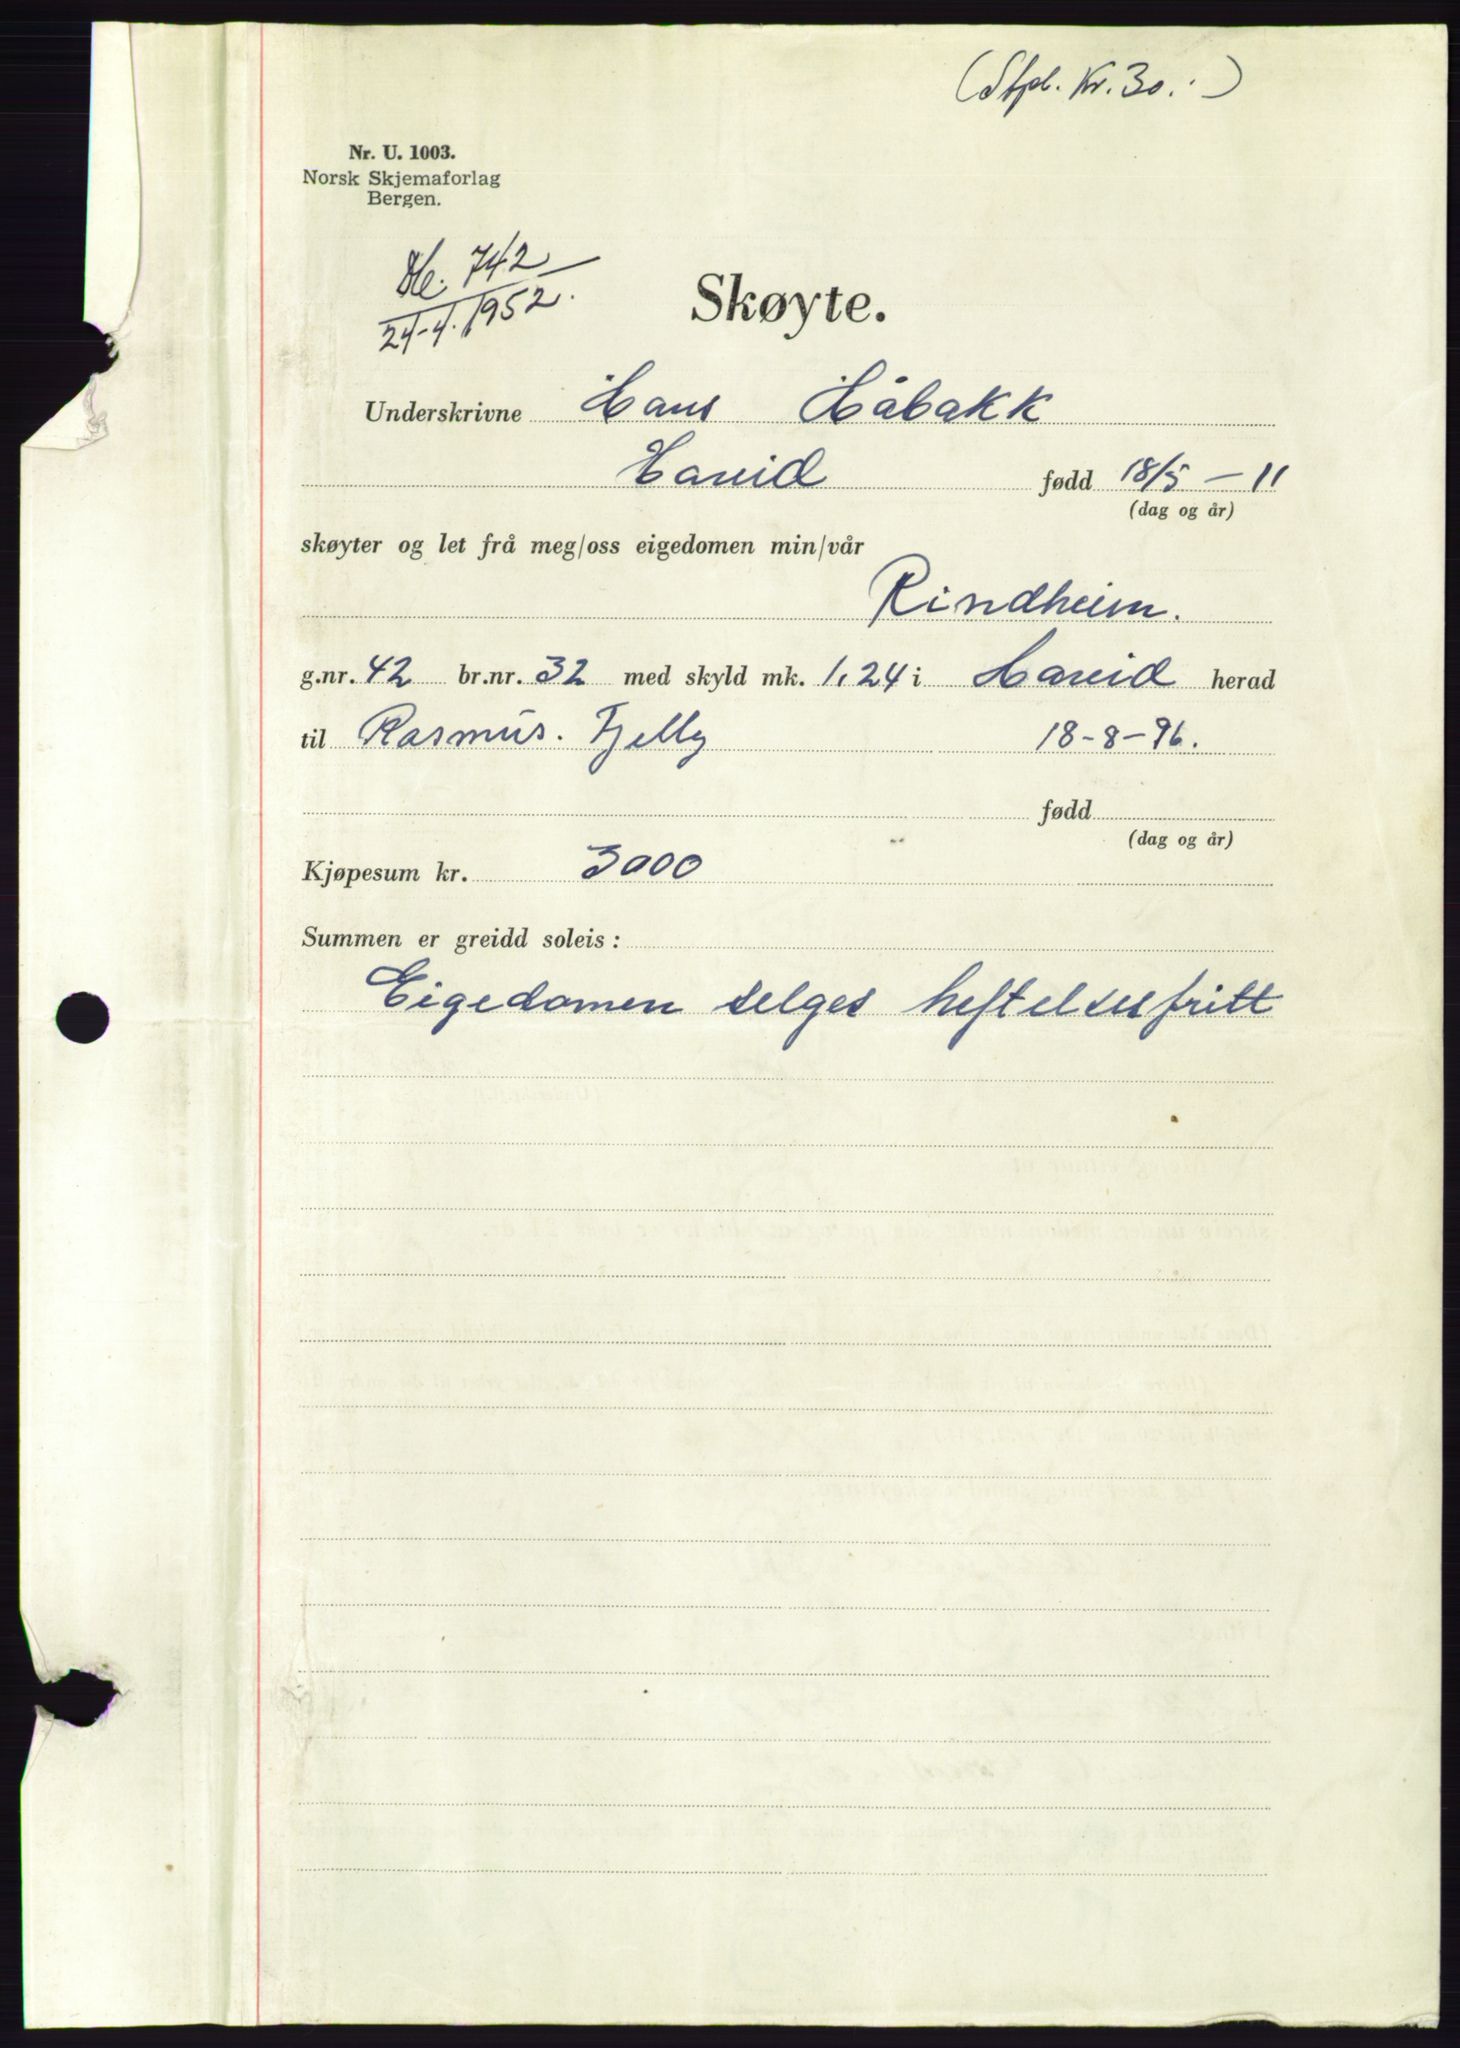 (Stpl. Kr. 30.-)
Nr. U. 1003.
Norsk Skjemaforlag
Bergen.
742
24-4. 1952.
Skøyte.
Underskrivne Hans Håbakk
Hareid fødd 18/5 - 11
(dag og år)
skøyter og let frå meg/oss eigedomen min/vår
Rindheim.
g.nr. 42 br.nr. 32 med skyld mk. 1,24 i Hareid herad
til Rasmus. Fjelly 18-8-96.
fødd
(dag og år)
Kjøpesum kr. 3000
Summen er greidd soleis:
Eigedomen selges heftelsesfritt